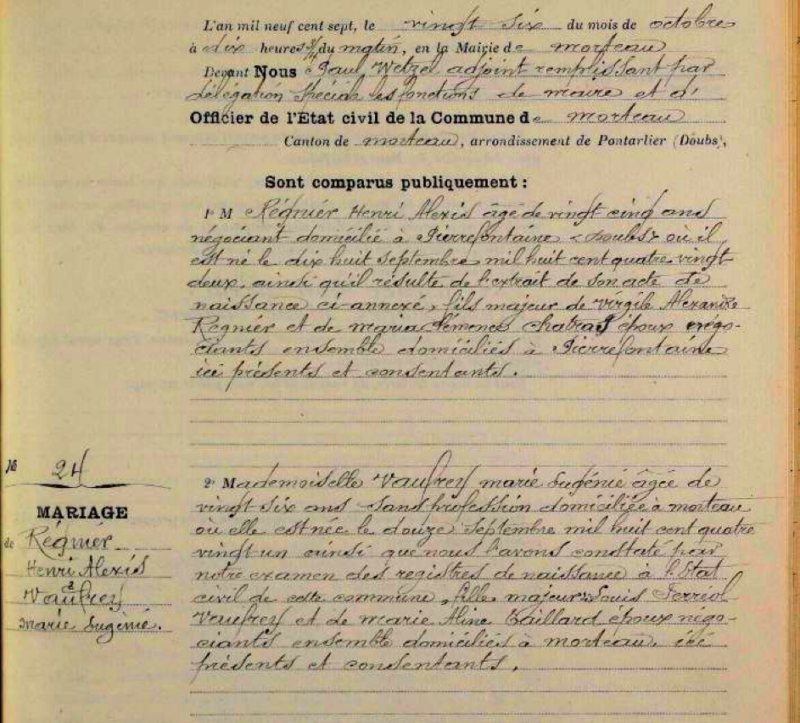 L'an mil neuf cent sept, le vingt six du mois de octobre
à dix heures 3/4 du matin, en la Mairie de morteau
Devant Nous Paul Wetzel adjoint remplissant par
délégation spéciale les fonctions de maire et d'
Officier de l'État civil de la Commune de morteau
Canton de morteau, arrondissement de Pontarlier (Doubs),
Sont comparus publiquement :
1° M Régnier Henri Alexis âgé de vingt cinq ans
négociant domicilié à Pierrefontaine (Doubs) où il
est né le dix huit septembre mil huit cent quatre vingt
deux, ainsi qu'il résulte de l'extrait de son acte de
naissance ci-annexé, fils majeur de Virgile Alexandre
Régnier et de maria Clémence époux négo-
ciants ensemble domiciliés à Pierrefontaine
ici présents et consentants.
N° 24
MARIAGE
de Régnier
Henri Alexis
&
Vaufrey
marie Eugénie.
2° Mademoiselle Vaufrey marie Eugénie âgée de
vingt six ans sans profession domiciliée à morteau
où elle est née le douze Septembre mil huit cent quatre
vingt un ainsi que nous l'avons constaté par
notre examen des registres de naissance à l'Etat
civil de cette commune, fille majeure Louis Ferréol
Vaufrey et de marie Aline Gaillard époux négo-
ciants ensemble domiciliés à morteau, ici
présents et consentants,